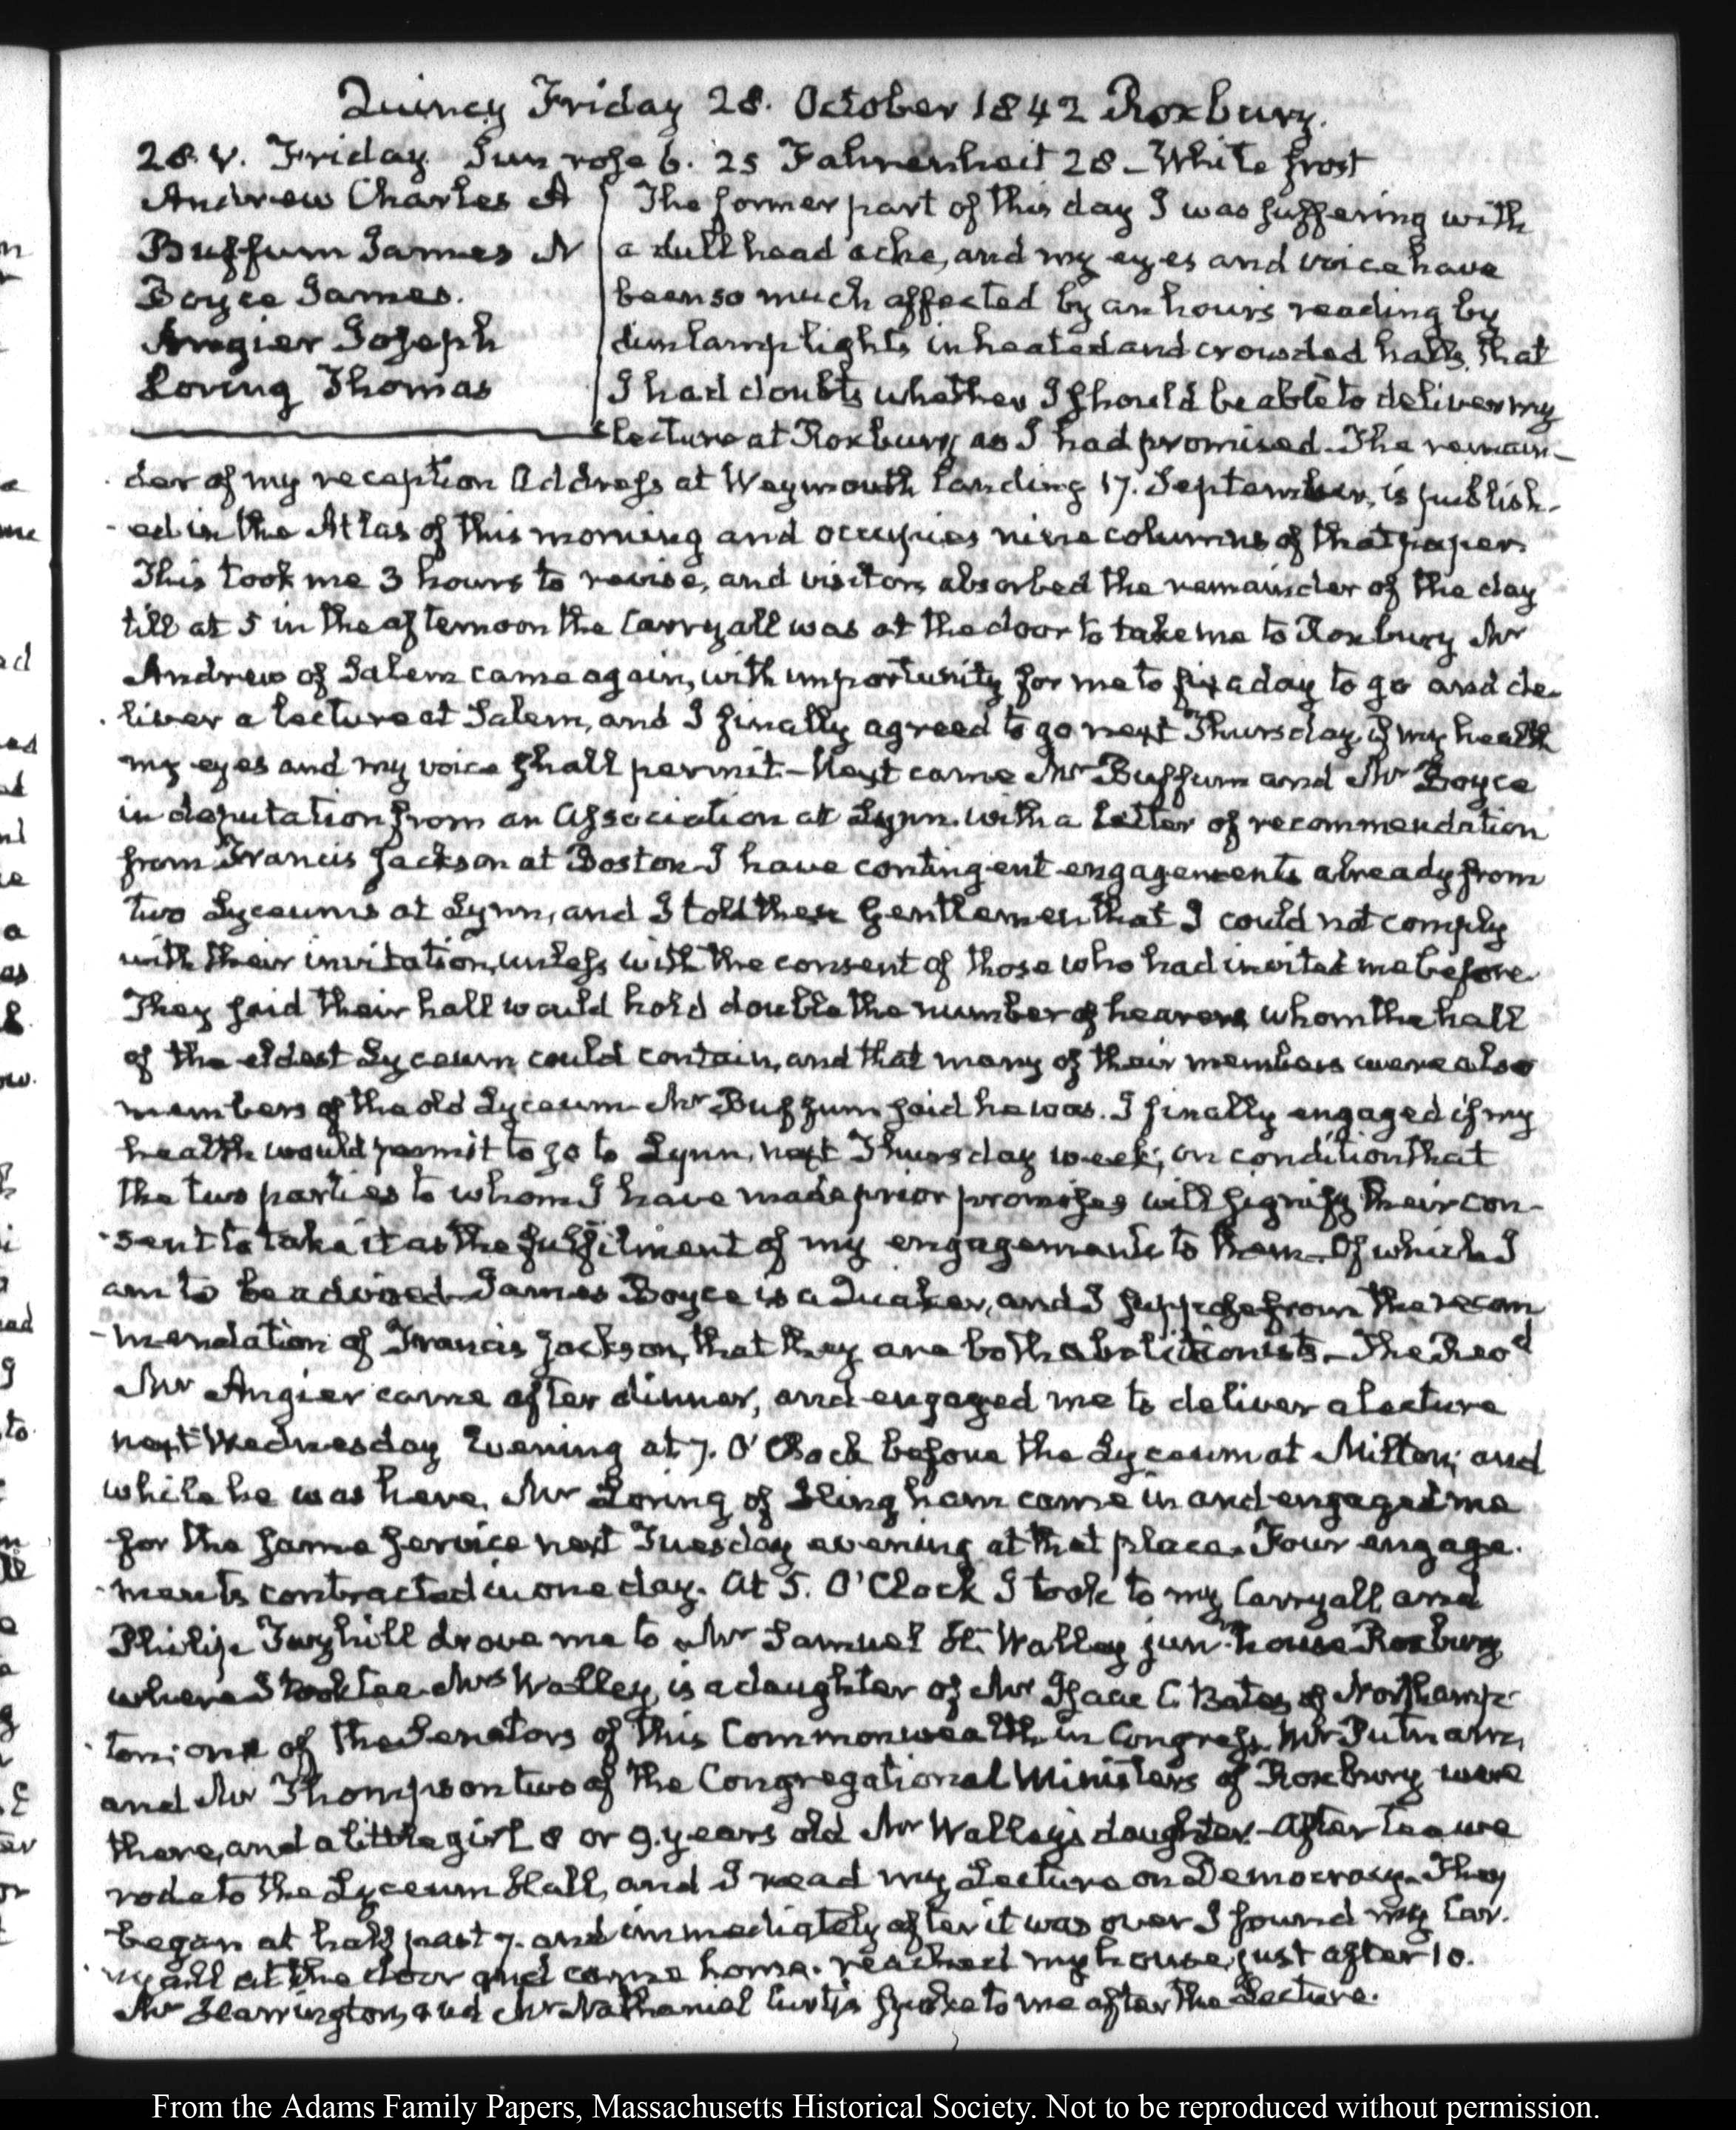 Quincy Friday 28. October 1842 Roxbury.
28. V. Friday. Sun rose 6. 25 Fahrenheit 28 – White frost
Andrew Charles A
Buffum James N
Boyce James.
Angier Joseph
Loring Thomas
The former part of this day I was suffering with
a dull head ache, and my eyes and voice have
been so much affected by an hours reading by
dim lamp lights in heated and crowded halls, that
I had doubts whether I should be able to deliver my
lecture at Roxbury as I had promised. The remain-
der of my reception Address at Weymouth Landing 17. September, is publish-
ed in the Atlas of this morning and occupies nine columns of that paper.
This took me 3 hours to revise, and visitors absorbed the remainder of the day
till at 5 in the afternoon the Carryall was at the door to take me to Roxbury Mr
Andrew of Salem came again, with importunity for me to fix a day to go and de-
liver a lecture at Salem, and I finally agreed to go next Thursday, if my health
my eyes and my voice shall permit – Next came Mr Buffum and Mr Boyce
in deputation from an Association at Lynn. with a letter of recommendation
from Francis Jackson at Boston – I have contingent engagements already from
two Lyceums at Lynn, and I told these Gentlemen that I could not comply
with their invitation, unless with the consent of those who had invited me before.
They said their hall would hold double the number of hearers whom the hall
of the eldest Lyceum could contain, and that many of their members were also
members of the old Lyceum – Mr Buffum said he was. I finally engaged if my
health would permit to go to Lynn, next Thursday week, on condition that
the two parties to whom I have made prior promises will signify their con-
sent to take it as the fulfilment of my engagements to them – Of which I
am to be advised – James Boyce is a Quaker, and I suppose from the recom
mendation of Francis Jackson, that they are both abolitionists – The Revd
Mr Angier came after dinner, and engaged me to deliver a lecture
next Wednesday Evening at 7. O'Clock before the Lyceum at Milton; and
while he was here, Mr Loring of Hingham came in and engaged me
for the same service next Tuesday evening at that place. Four engage-
ments contracted in one day. At 5. O'Clock I took to my Carryall and
Philip drove me to Mr Samuel H. Walley junr house Roxbury
where I took tea – Mrs Walley, is a daughter of Mr Isaac C. Bates of Northamp-
ton; one of the Senators of this Commonwealth in Congress. Mr Putnam,
and Mr Thompson two of the Congregational Ministers of Roxbury were
there, and a little girl 8 or 9. years old Mr Walley's daughter – After tea we
rode to the Lyceum Hall, and I read my Lecture on Democracy – They
began at half past 7. and immediately after it was over I found my Car-
ryall at the door and came home. reached my house, just after 10.
Mr Harrington, and Mr Nathaniel Curtis spoke to me after the Lecture.
From the Adams Family Papers, Massachusetts Historical Society. Not to be reproduced without permission.